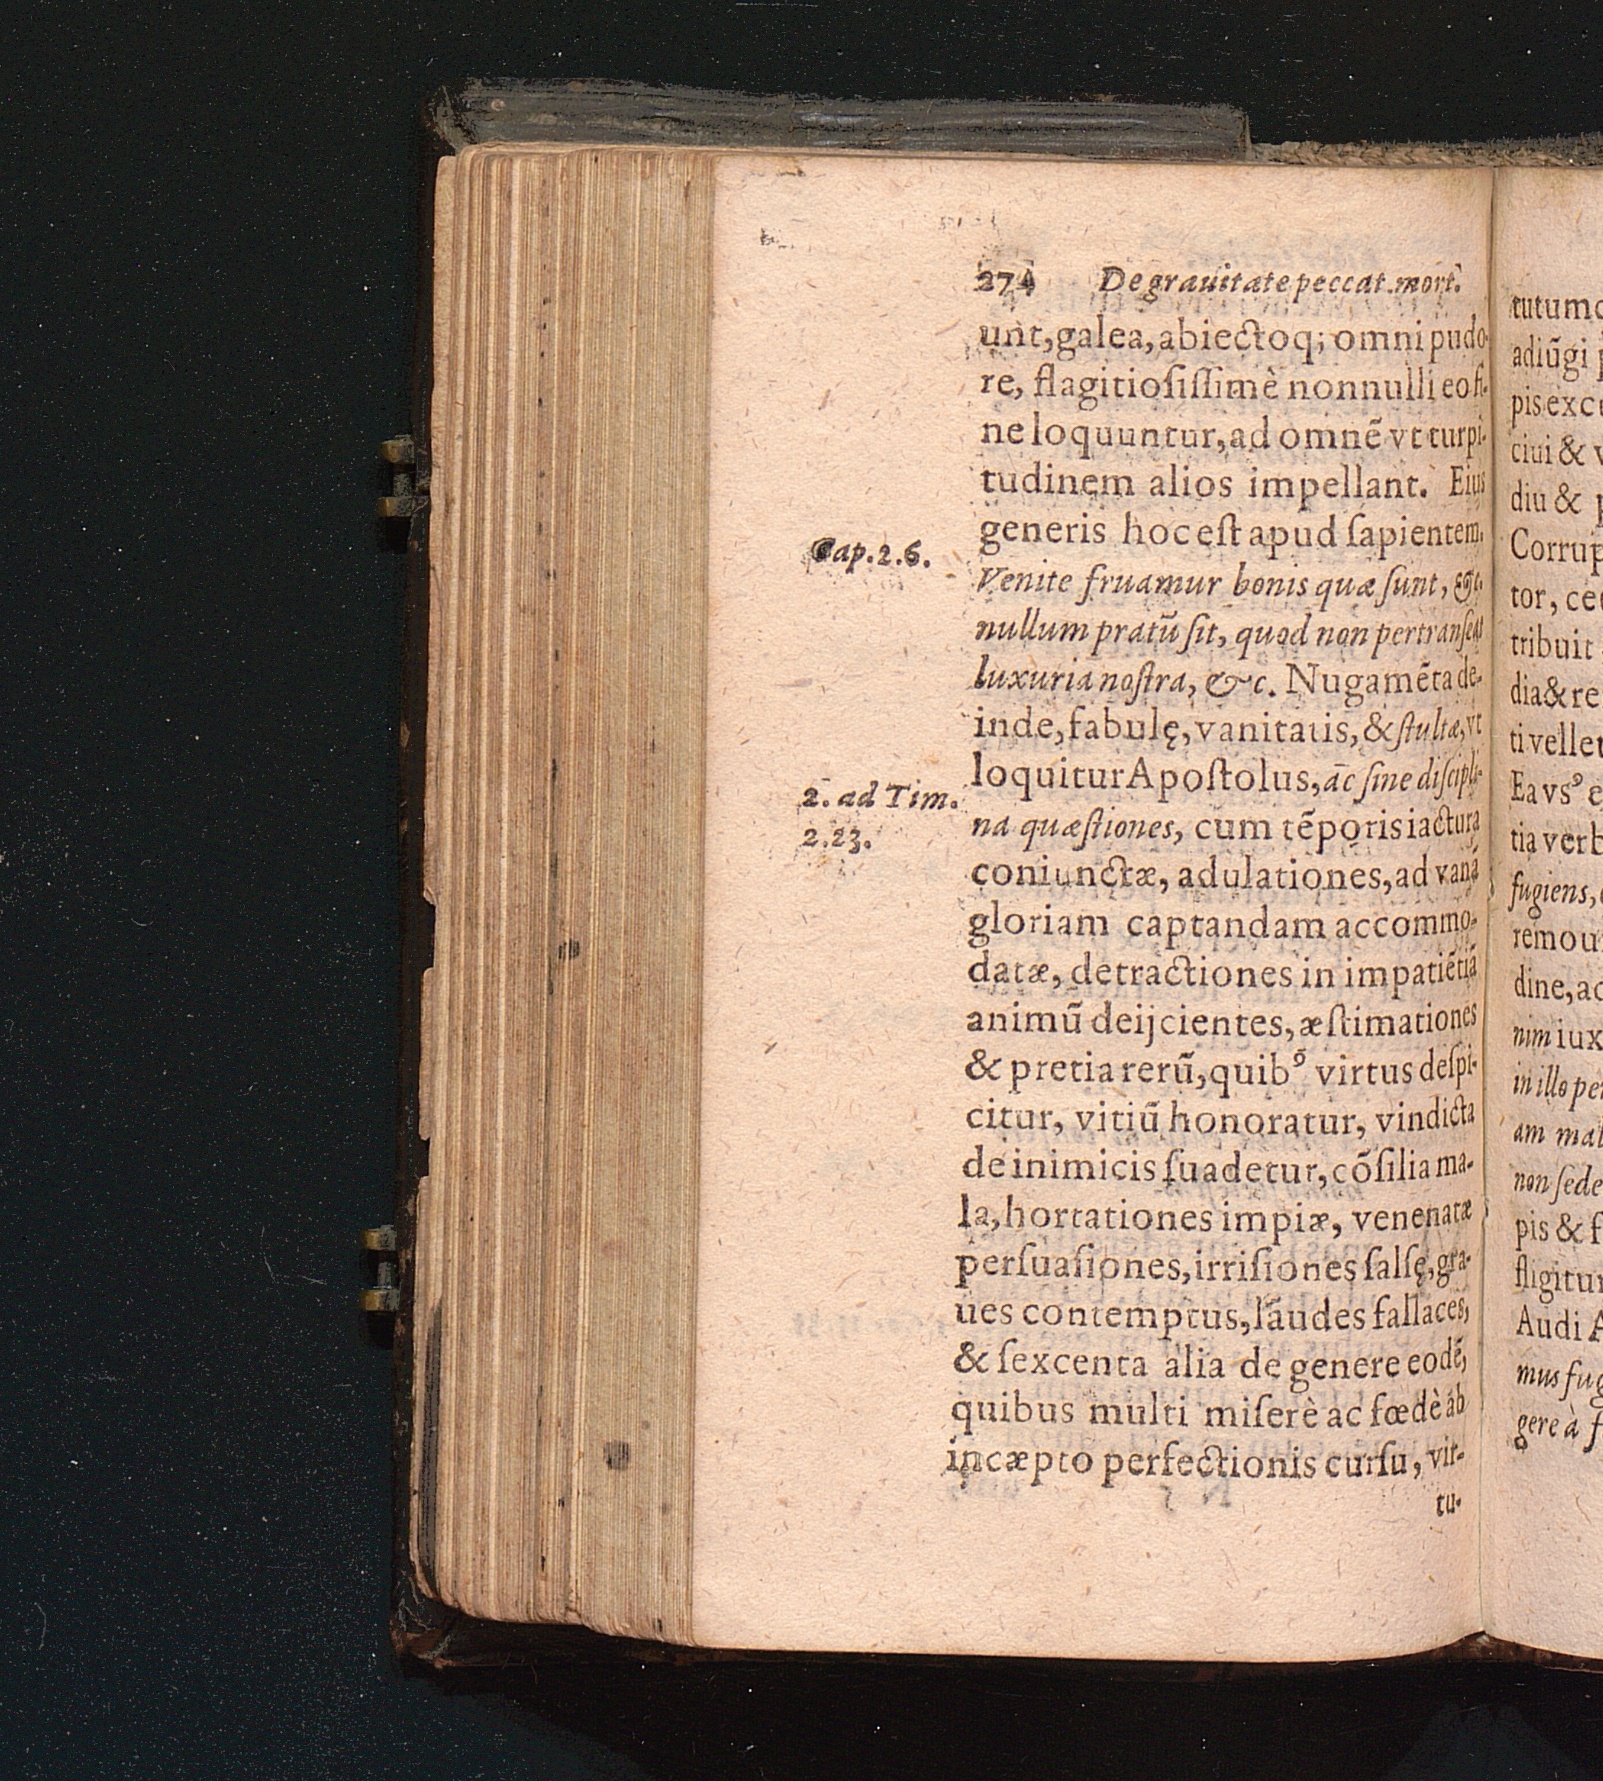 274 De grauitate peccat. mort.
unt, galea, abiectoq; omni pudo-
re, flagitiosissimè nonnulli eo fi-
ne loquuntur, ad omnē vt turpi-
tudinem alios impellant. Eius
generis hoc est apud sapientem.
Cap. 2. 6.
Venite fruamur bonis quæ sunt, &c.
nullum pratū sit, quod non pertranseat
luxuria nostra, &c. Nugamēta de-
inde, fabulę, vanitatis, & stultæ, vt
loquitur Apostolus, ac sine discipli-
2. ad Tim.
2.23.
na quæstiones, cum tēporis iactura
coniunctæ, adulationes, ad vanā
gloriam captandam accommo-
datæ, detractiones in impatiētiā
animū deijcientes, æstimationes
& pretia rerū, quibꝰ virtus despi-
citur, vitiū honoratur, vindicta
de inimicis suadetur, cōsilia ma-
la, hortationes impiæ, venenatæ
persuasiones, irrisiones falsę, gra-
ues contemptus, laudes fallaces,
& sexcenta alia de genere eodē,
quibus multi miserè ac fœdè ab
incæpto perfectionis cursu, vir-
tu-
tutumq
adiūgi
pis exc
ciui &
diu &
Corrup
tor, ce
tribuit
dia & re
ti velle
Ea vsꝰ e
tia verb
fugiens,
remou
dine, ac
nim iux
in illo pe
am mal
non sede
pis & f
fligitur
Audi A
mus fug
gere à f